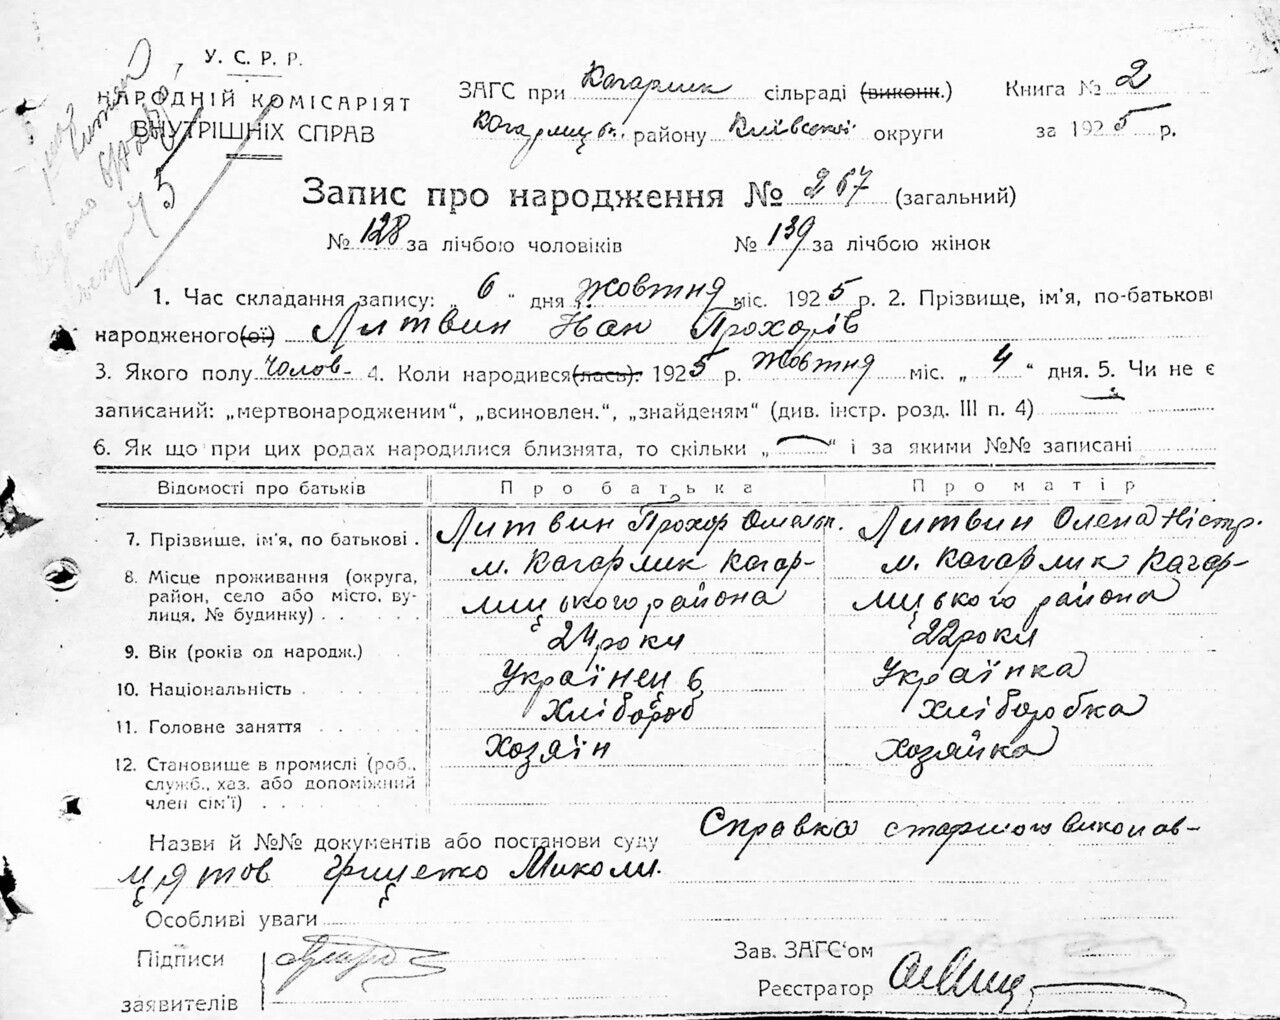 У. С. Р. Р.
НАРОДНІЙ КОМІСАРІЯТ
ВНУТРІШНІХ СПРАВ
ЗАГС при Кагарлик сільраді (виконк.) Книга № 2
району Київської округи за 1925 р.
Запис про народження № 267 (загальний)
№ 128 за лічбою чоловіків № 139 за лічбою жінок
1. Час складання запису: „ 6 “ дня Жовтня міс. 1925 р. 2. Прізвище, ім'я, по-батькові
народженого(ої) Литвин Іван Прохорів
3. Якого полу чолов- 4. Коли народився(лась). 1925 р. Жовтня міс. „ 4 “ дня. 5. Чи не є
записаний: „мертвонародженим“, „всиновлен.“, „знайденям“ (див. інстр. розд. III п. 4)
6. Як що при цих родах народилися близнята, то скільки „ — “ і за якими №№ записані
Відомості про батьків Про батька Про матір
7. Прізвище, ім'я, по батькові . Литвин Прохор Омельп. Литвин ОленаНістр.
8. Місце проживання (округа, район, село або місто, вулиця, № будинку) м. Кагарлик Кагар- м. Кагарлик Кагар-
лицького района лицького района
9. Вік (років од народж.) 24 роки 22 роки
10. Національність Українець Українка
11. Головне заняття Хлібороб Хліборобка
12. Становище в промислі (роб., служб., хаз. або допоміжний член сім'ї) Хозяїн Хозяйка
Назви й №№ документів або постанови суду Справка старшого виконав-
ця тов Грищенко Миколи.
Особливі уваги
Підписи
заявителів
Зав. ЗАГС'ом
Реєстратор